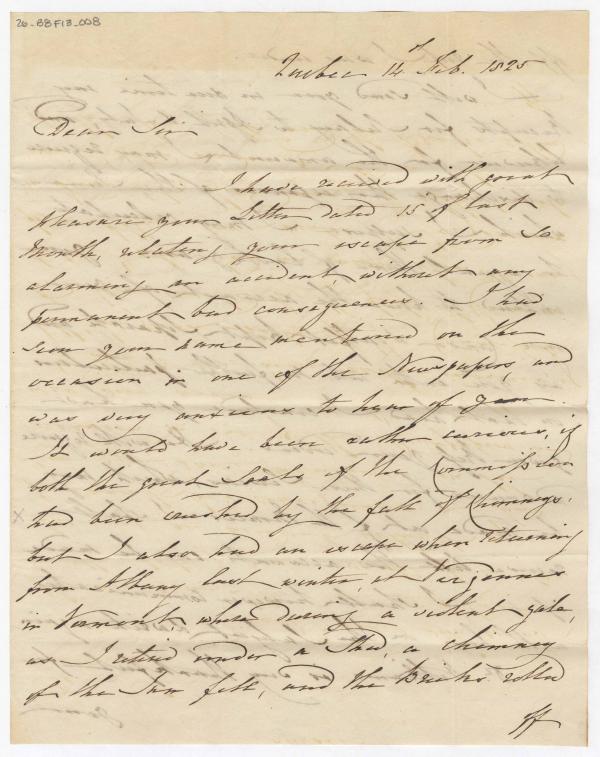 26-BBF13-008
Quebec 14th Feb. 1825
Dear Sir
I have received with great
pleasure your Letter dated 15th of last
Month, relating your escape from so
alarming an accident, without any
permanent bad consequences. I had
seen your name mentioned on the
occasion in one of the Newspapers, and
was very anxious to hear of you.
It would have been rather curious, if
both the great Seals of the Commission
had been crushed by the fall of Chimneys.
but I also had an escape when returning
from Albany last winter, at Vergennes
in Vermont where during a violent gale,
as I retired under a Shed, a chimney
of the Inn fell, and the Bricks rolled